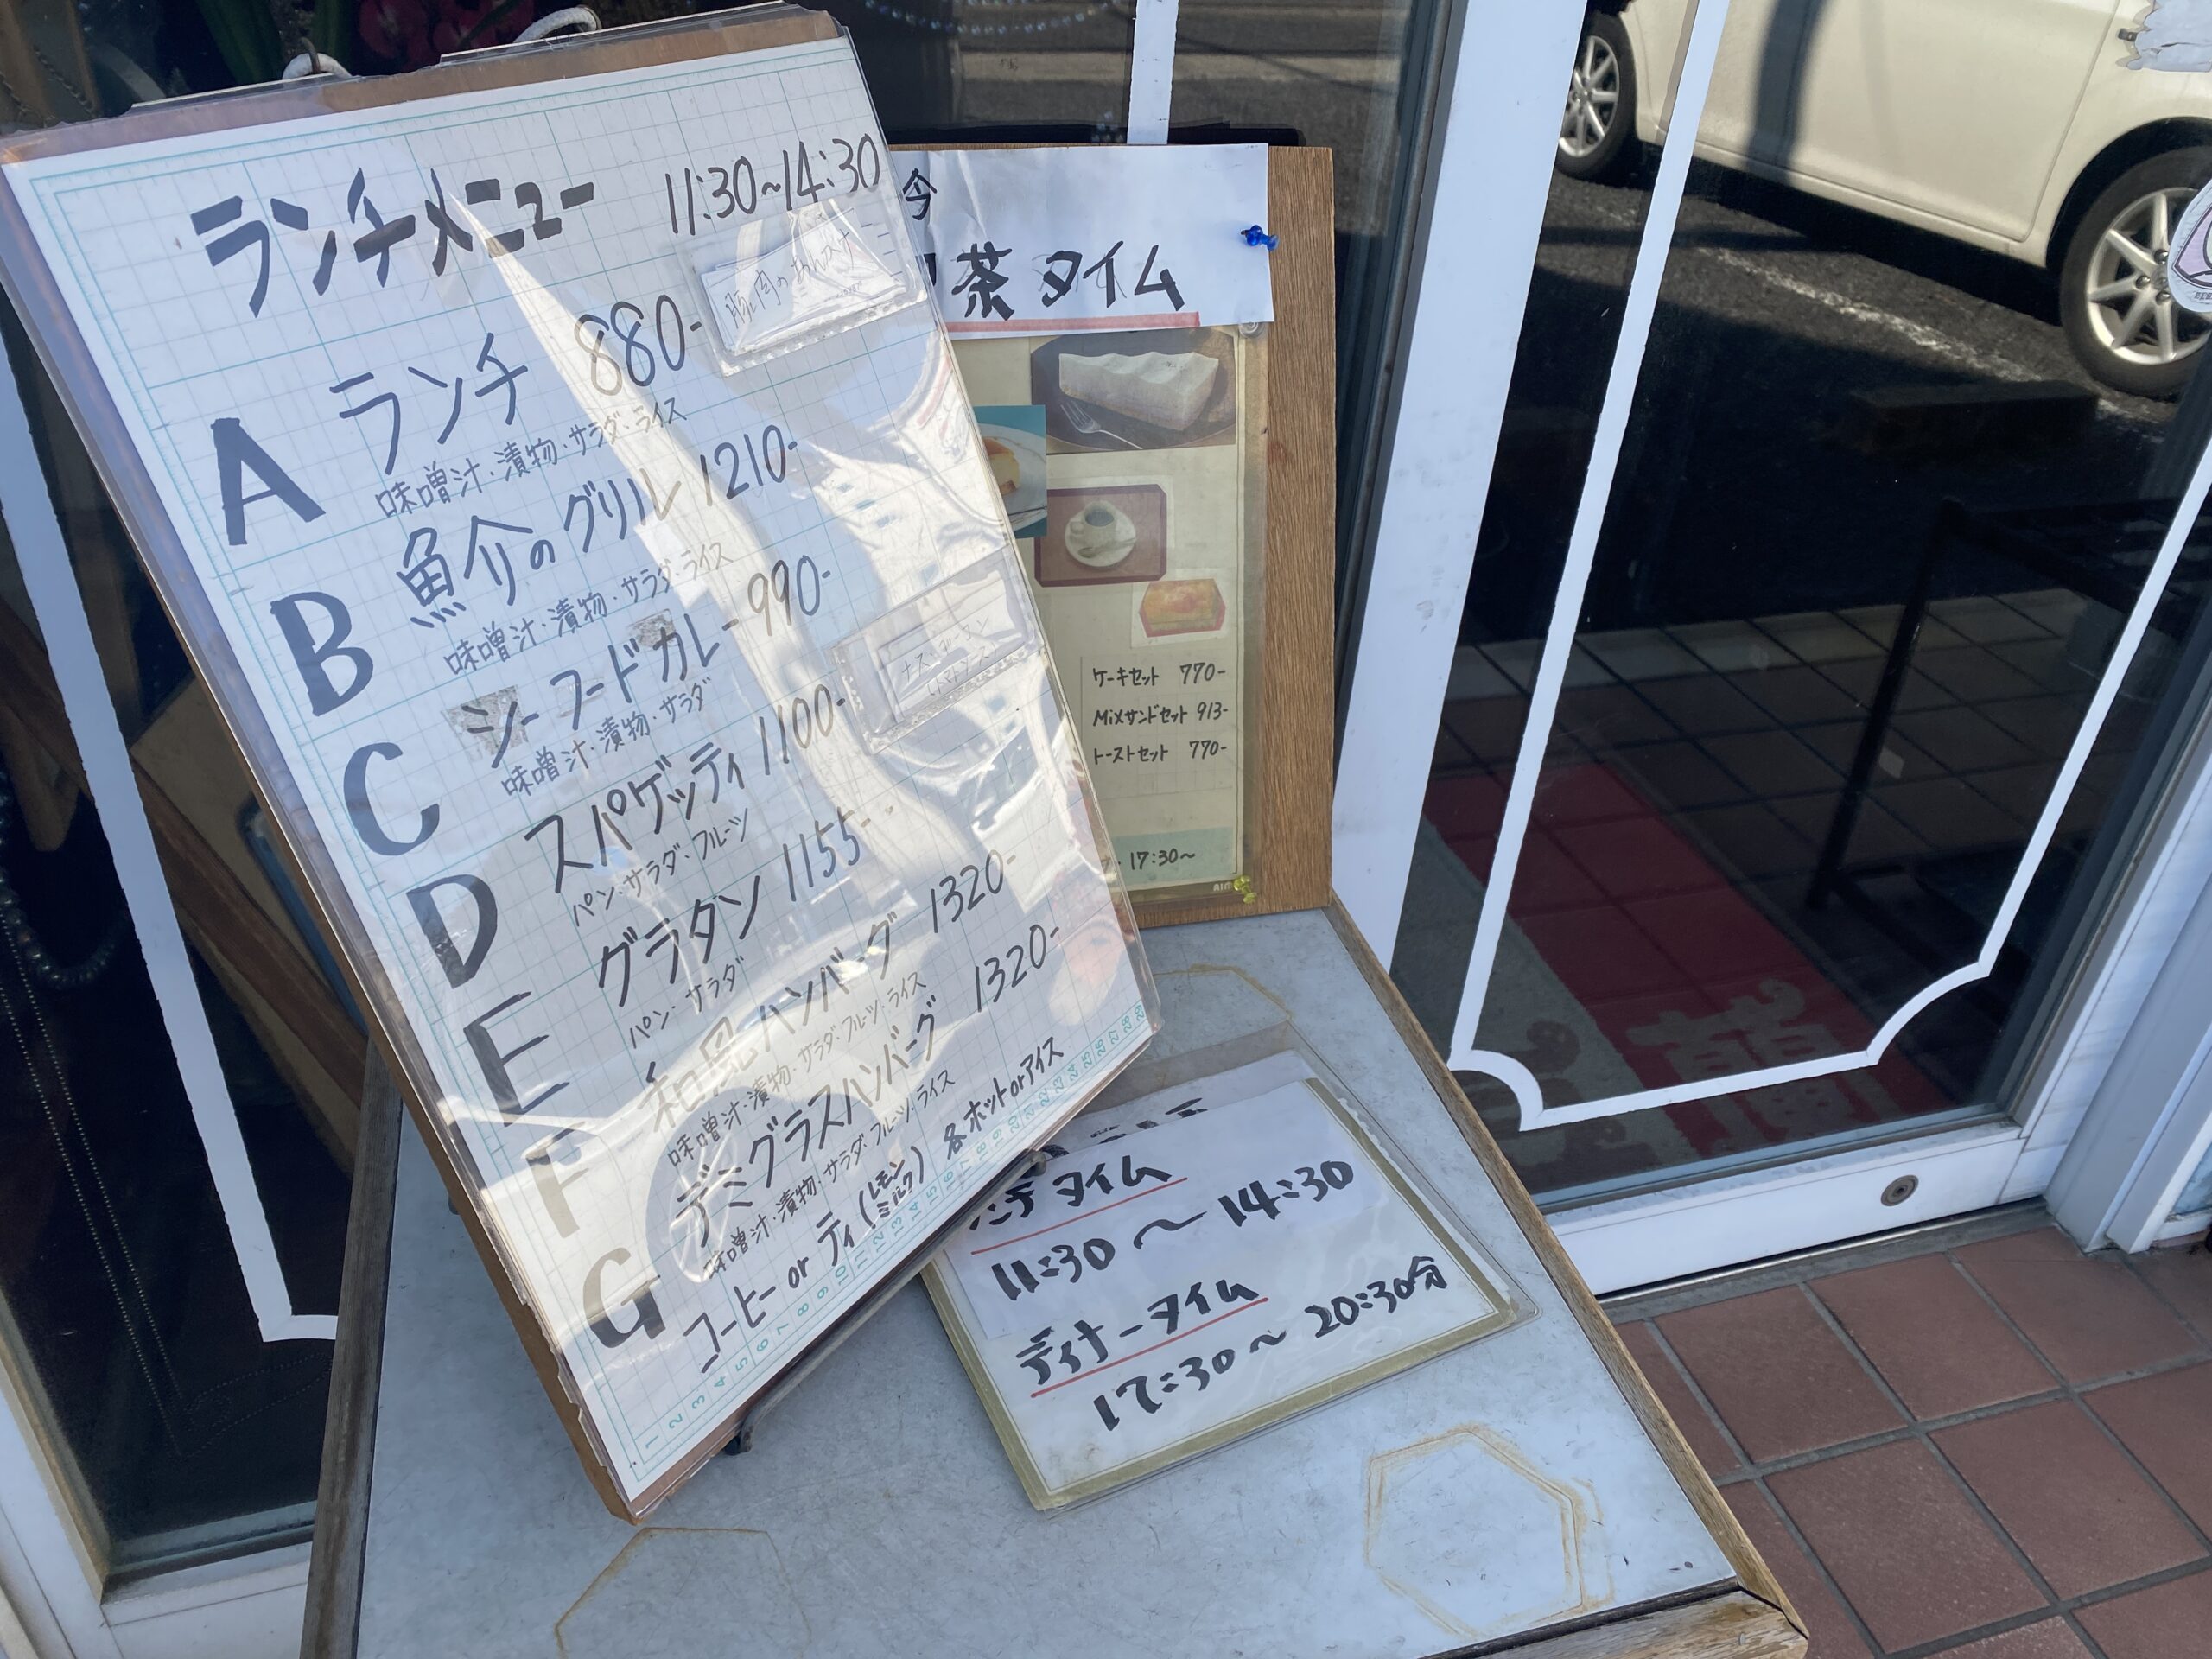 ランチメニュー 11:30~14:30
A ランチ 880-
味噌汁・漬物・サラダ・ライス
B 魚介のグリル 1210-
味噌汁・漬物・サラダ・ライス
C シーフードカレー 990-
味噌汁・漬物・サラダ
D スパゲッティ 1100-
パン・サラダ・フルーツ
E グラタン 1155-
パン・サラダ
F 和風ハンバーグ 1320-
味噌汁・漬物・サラダ・フルーツ・ライス
G デミグラスハンバーグ 1320-
味噌汁・漬物・サラダ・フルーツ・ライス
コーヒー or ティ(レモン ミルク) 各ホットorアイス
1 2 3 4 5 6 7 8 9 10 11 12 13 14 15 16 17 18 19 20 21 22 23 24 25 26 27 28 29
今
茶タイム
ケーキセット 770-
Mixサンドセット 913-
トーストセット 770-
17:30~
チタイム
11:30~14:30
ディナータイム
17:30~20:30分
蘭